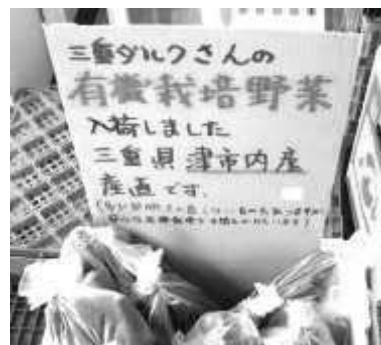 三重ダルクさんの
有機栽培野菜
入荷しました
三重県津市内産
産直です。